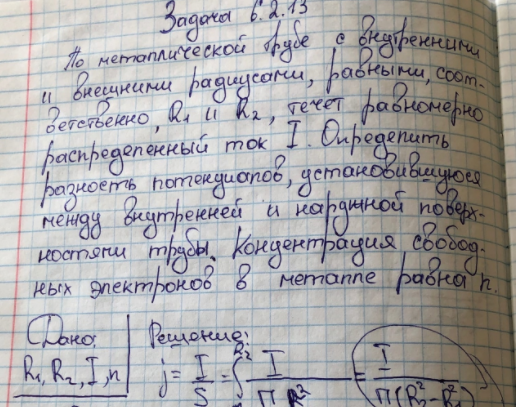 Задача 6.2.13
По металлической трубе с внутренними
и внешними радиусами, равными, соот-
ветственно, R₁ и R₂, течет равномерно
распределенный ток I. Определить
разность потенциалов, установившуюся
между внутренней и наружной поверх-
ностями трубы. Концентрация свобод-
ных электронов в металле равна n.
Дано: Решение:
R₁, R₂, I, n j = I/S = I/(πR²) = I/(π(R₂² - R₁²))